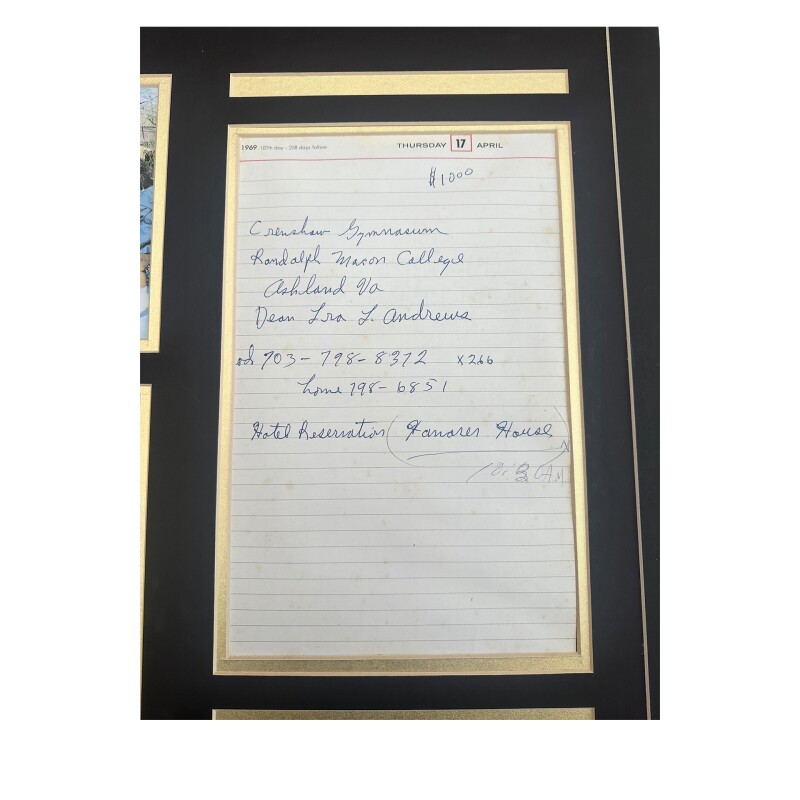 1969 107th day - 258 days follow THURSDAY 17 APRIL
$1000
Crenshaw Gymnasium
Randolph Macon College
Ashland Va
Dean Ira L. Andrews
703-798-8372 x266
home 798-6851
Hotel Reservation (House